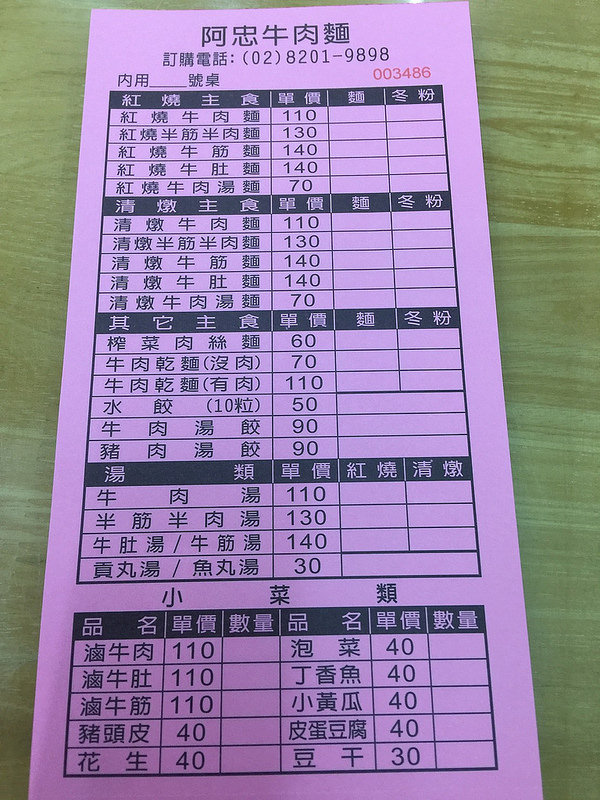 阿忠牛肉麵
訂購電話:(02)8201-9898
內用____號桌 003486
紅燒主食 單價 麵 冬粉
紅燒牛肉麵 110
紅燒半筋半肉麵 130
紅燒牛筋麵 140
紅燒牛肚麵 140
紅燒牛肉湯麵 70
清燉主食 單價 麵 冬粉
清燉牛肉麵 110
清燉半筋半肉麵 130
清燉牛筋麵 140
清燉牛肚麵 140
清燉牛肉湯麵 70
其它主食 單價 麵 冬粉
榨菜肉絲麵 60
牛肉乾麵(沒肉) 70
牛肉乾麵(有肉) 110
水餃(10粒) 50
牛肉湯餃 90
豬肉湯餃 90
湯類 單價 紅燒 清燉
牛肉湯 110
半筋半肉湯 130
牛肚湯/牛筋湯 140
貢丸湯/魚丸湯 30
小菜類
品名 單價 數量 品名 單價 數量
滷牛肉 110 泡菜 40
滷牛肚 110 丁香魚 40
滷牛筋 110 小黃瓜 40
豬頭皮 40 皮蛋豆腐 40
花生 40 豆干 30